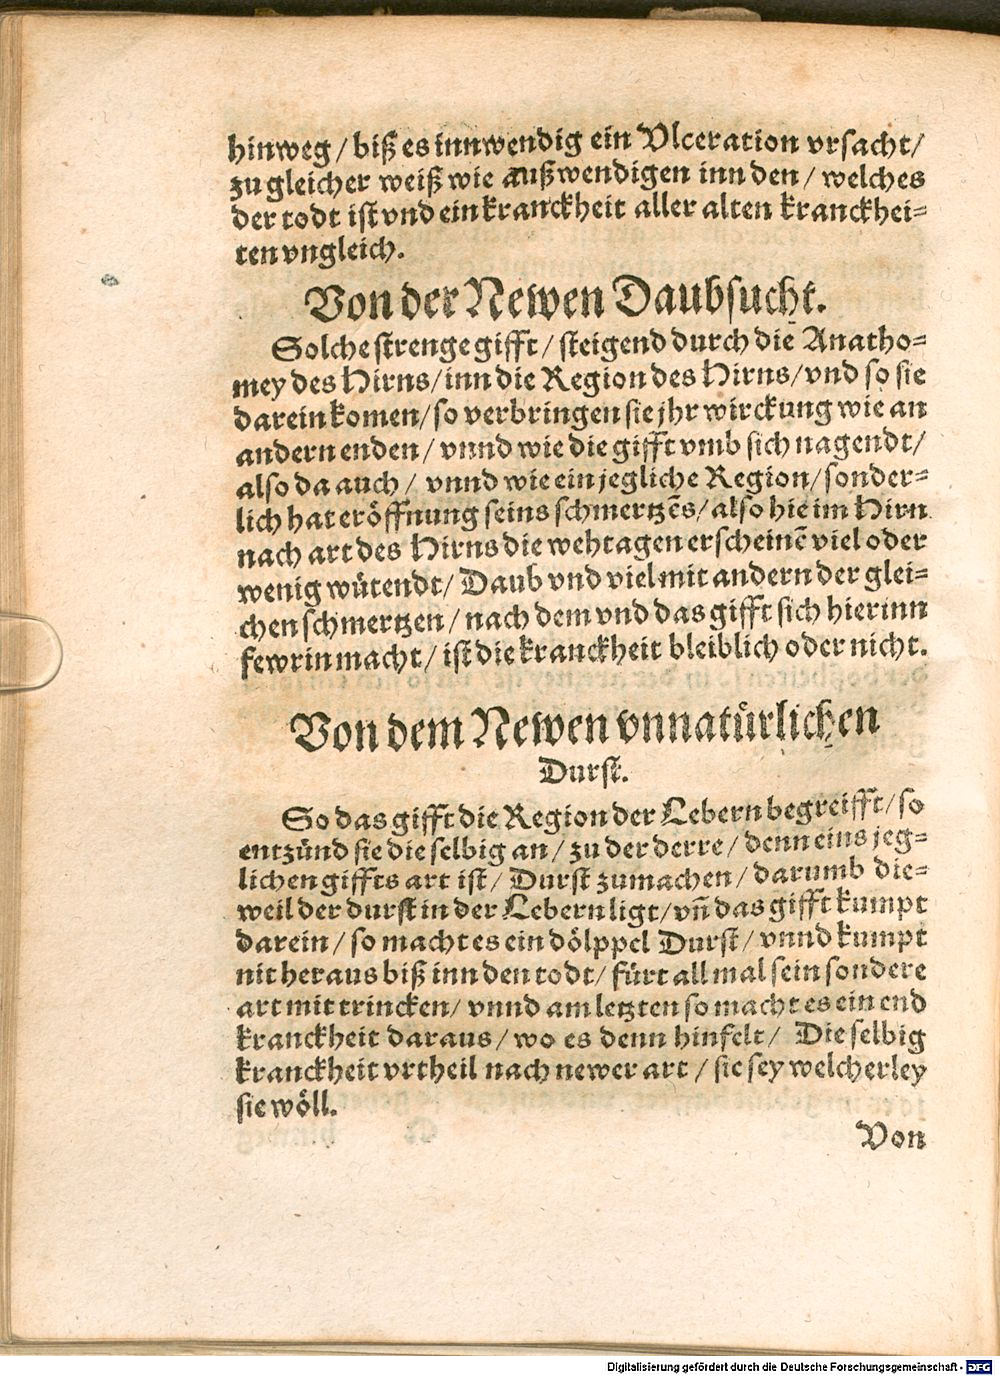 hinweg / biß es innwendig ein Vlceration vrsacht /
zu gleicher weiß wie außwendigen inn den / welches
der todt ist vnd ein kranckheit aller alten kranckhei=
ten vngleich.
Von der Newen Daubsucht.
Solche strenge gifft / steigend durch die Anatho=
mey des Hirns / inn die Region des Hirns / vnd so sie
darein komen / so verbringen sie jhr wirckung wie an
andern enden / vnnd wie die gifft vmb sich nagendt /
also da auch / vnnd wie ein jegliche Region / sonder=
lich hat eröffnung seins schmertzēs / also hie im Hirn
nach art des Hirns die wehtagen erscheinē viel oder
wenig wütendt / Daub vnd viel mit andern der glei=
chen schmertzen / nach dem vnd das gifft sich hierinn
fewrin macht / ist die kranckheit bleiblich oder nicht.
Von dem Newen vnnatürlichen
Durst.
So das gifft die Region der Lebern begreifft / so
entzünd sie die selbig an / zu der derre / denn eins jeg=
lichen giffts art ist / Durst zumachen / darumb die=
weil der durst in der Lebern ligt / vñ das gifft kumpt
darein / so macht es ein dölppel Durst / vnnd kumpt
nit heraus biß inn den todt / fürt all mal sein sondere
art mit trincken / vnnd am letzten so macht es ein end
kranckheit daraus / wo es denn hinfelt / Die selbig
kranckheit vrtheil nach newer art / sie sey welcherley
sie wöll.
Von
Digitalisierung gefördert durch die Deutsche Forschungsgemeinschaft - DFG